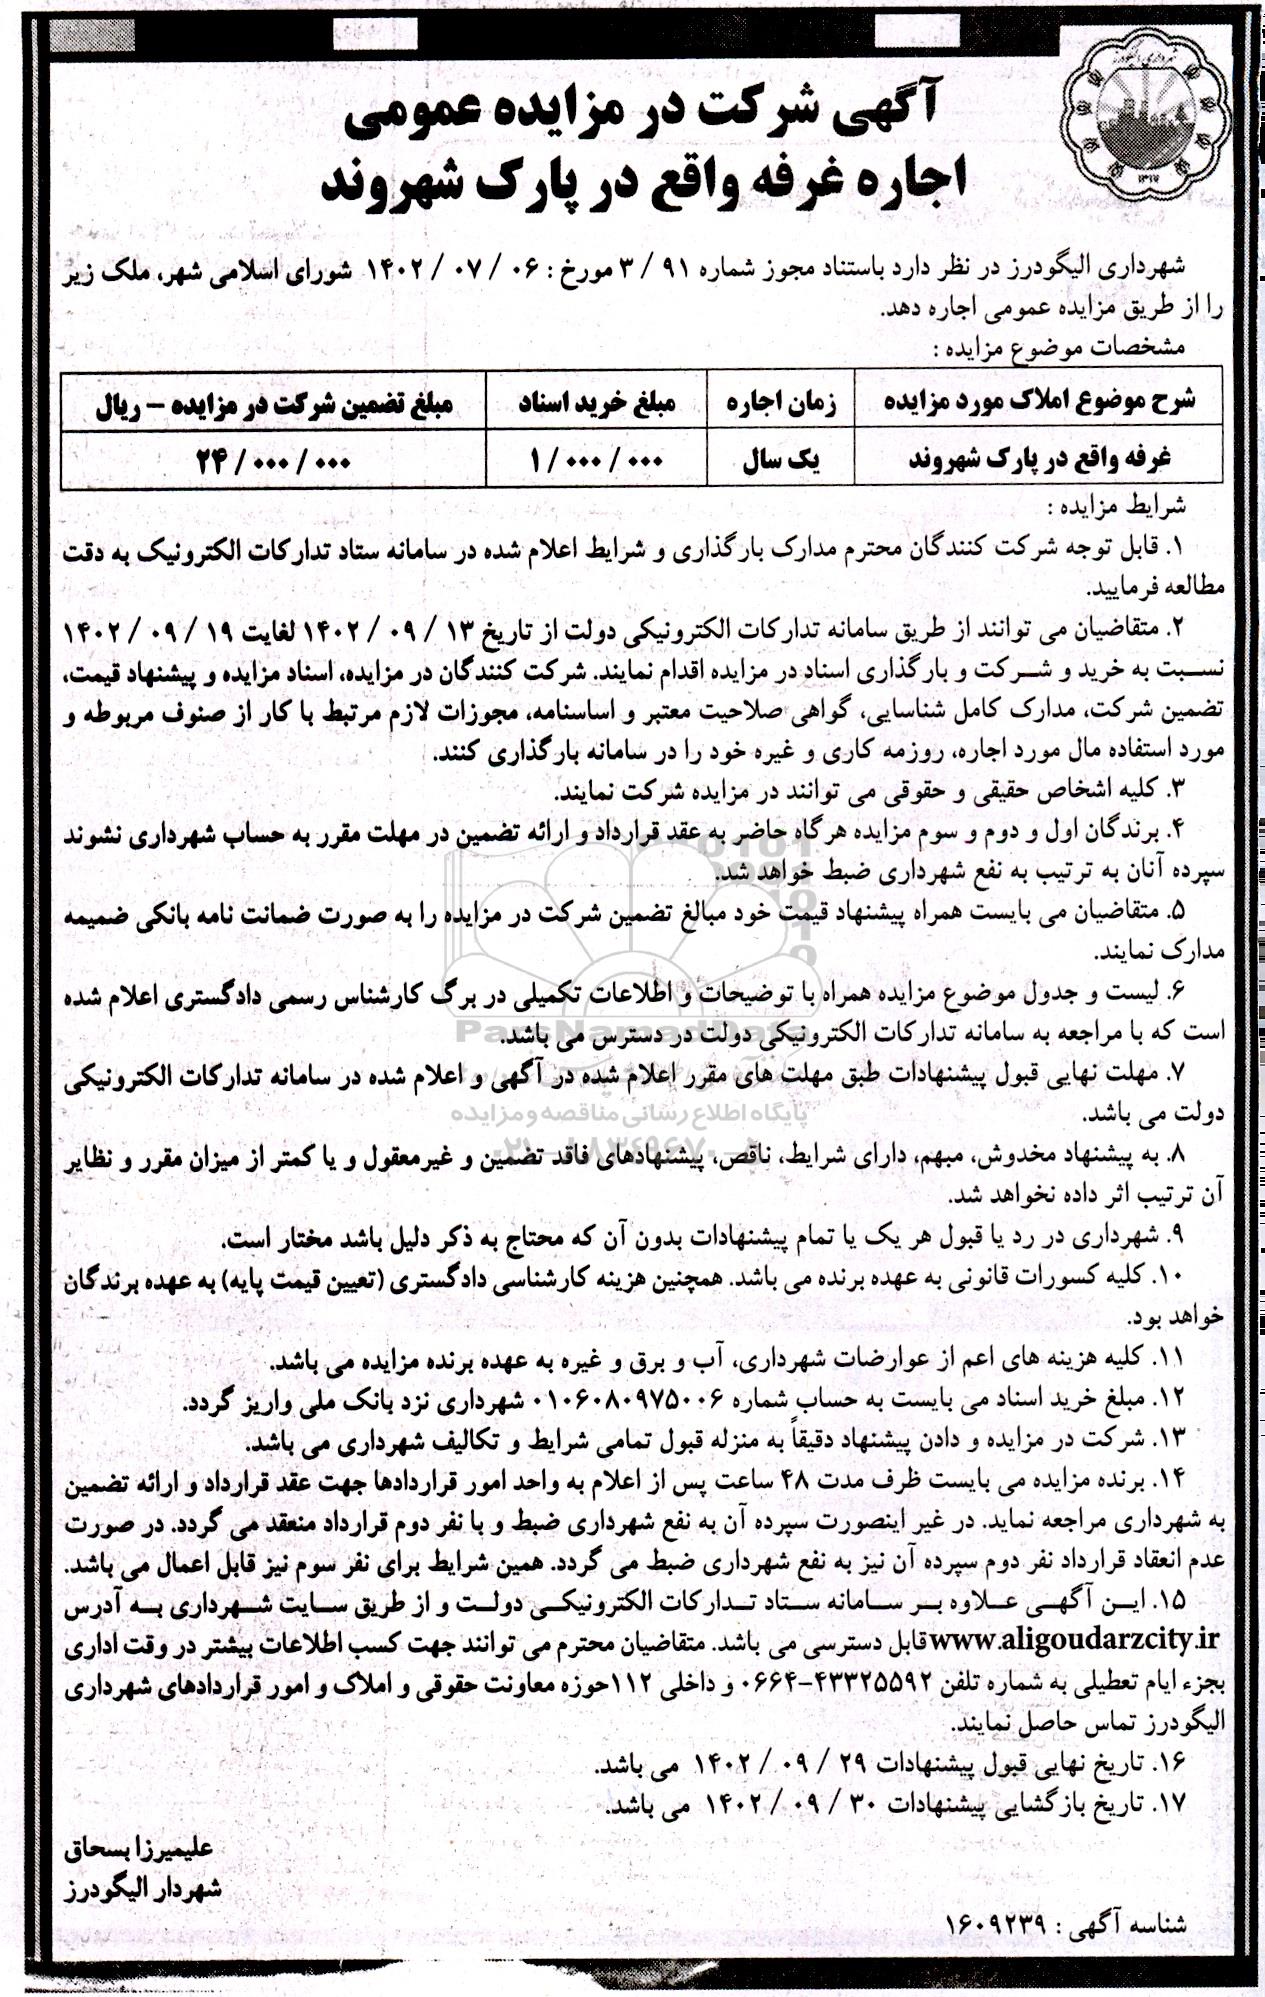 آگهی شرکت در مزایده عمومی
اجاره غرفه واقع در پارک شهروند
شهرداری الیگودرز
۱۳۱۷
شهرداری الیگودرز در نظر دارد باستناد مجوز شماره ۹۱ / ۳ مورخ : ۰۶ / ۰۷ / ۱۴۰۲ شورای اسلامی شهر، ملک زیر
را از طریق مزایده عمومی اجاره دهد.
مشخصات موضوع مزایده :
شرح موضوع املاک مورد مزایده | زمان اجاره | مبلغ خرید اسناد | مبلغ تضمین شرکت در مزایده – ریال
غرفه واقع در پارک شهروند | یک سال | ۱/۰۰۰/۰۰۰ | ۲۴/۰۰۰/۰۰۰
شرایط مزایده :
۱. قابل توجه شرکت کنندگان محترم مدارک بارگذاری و شرایط اعلام شده در سامانه ستاد تدارکات الکترونیک به دقت
مطالعه فرمایید.
۲. متقاضیان می توانند از طریق سامانه تدارکات الکترونیکی دولت از تاریخ ۱۳ / ۰۹ / ۱۴۰۲ لغایت ۱۹ / ۰۹ / ۱۴۰۲
نسبت به خرید و شرکت و بارگذاری اسناد در مزایده اقدام نمایند. شرکت کنندگان در مزایده، اسناد مزایده و پیشنهاد قیمت،
تضمین شرکت، مدارک کامل شناسایی، گواهی صلاحیت معتبر و اساسنامه، مجوزات لازم مرتبط با کار از صنوف مربوطه و
مورد استفاده مال مورد اجاره، روزمه کاری و غیره خود را در سامانه بارگذاری کنند.
۳. کلیه اشخاص حقیقی و حقوقی می توانند در مزایده شرکت نمایند.
۴. برندگان اول و دوم و سوم مزایده هرگاه حاضر به عقد قرارداد و ارائه تضمین در مهلت مقرر به حساب شهرداری نشوند
سپرده آنان به ترتیب به نفع شهرداری ضبط خواهد شد.
۵. متقاضیان می بایست همراه پیشنهاد قیمت خود مبالغ تضمین شرکت در مزایده را به صورت ضمانت نامه بانکی ضمیمه
مدارک نمایند.
۶. لیست و جدول موضوع مزایده همراه با توضیحات و اطلاعات تکمیلی در برگ کارشناس رسمی دادگستری اعلام شده
است که با مراجعه به سامانه تدارکات الکترونیکی دولت در دسترس می باشد.
ParsNamadData
۷. مهلت نهایی قبول پیشنهادات طبق مهلت های مقرر اعلام شده در آگهی و اعلام شده در سامانه تدارکات الکترونیکی
دولت می باشد.
پایگاه اطلاع رسانی مناقصه و مزایده
۸. به پیشنهاد مخدوش، مبهم، دارای شرایط، ناقص، پیشنهادهای فاقد تضمین و غیرمعقول و یا کمتر از میزان مقرر و نظایر
آن ترتیب اثر داده نخواهد شد.
۹. شهرداری در رد یا قبول هر یک یا تمام پیشنهادات بدون آن که محتاج به ذکر دلیل باشد مختار است.
۱۰. کلیه کسورات قانونی به عهده برنده می باشد. همچنین هزینه کارشناسی دادگستری (تعیین قیمت پایه) به عهده برندگان
خواهد بود.
۱۱. کلیه هزینه های اعم از عوارضات شهرداری، آب و برق و غیره به عهده برنده مزایده می باشد.
۱۲. مبلغ خرید اسناد می بایست به حساب شماره ۰۱۰۶۰۸۰۹۷۵۰۰۶ شهرداری نزد بانک ملی واریز گردد.
۱۳. شرکت در مزایده و دادن پیشنهاد دقیقاً به منزله قبول تمامی شرایط و تکالیف شهرداری می باشد.
۱۴. برنده مزایده می بایست ظرف مدت ۴۸ ساعت پس از اعلام به واحد امور قراردادها جهت عقد قرارداد و ارائه تضمین
به شهرداری مراجعه نماید. در غیر اینصورت سپرده آن به نفع شهرداری ضبط و با نفر دوم قرارداد منعقد می گردد. در صورت
عدم انعقاد قرارداد نفر دوم سپرده آن نیز به نفع شهرداری ضبط می گردد. همین شرایط برای نفر سوم نیز قابل اعمال می باشد.
۱۵. این آگهی علاوه بر سامانه ستاد تدارکات الکترونیکی دولت و از طریق سایت شهرداری به آدرس
www.aligoudarzcity.ir قابل دسترسی می باشد. متقاضیان محترم می توانند جهت کسب اطلاعات بیشتر در وقت اداری
بجزء ایام تعطیلی به شماره تلفن ۴۳۳۲۵۵۹۲-۰۶۶۴ و داخلی ۱۱۲حوزه معاونت حقوقی و املاک و امور قراردادهای شهرداری
الیگودرز تماس حاصل نمایند.
۱۶. تاریخ نهایی قبول پیشنهادات ۲۹ / ۰۹ / ۱۴۰۲ می باشد.
۱۷. تاریخ بازگشایی پیشنهادات ۳۰ / ۰۹ / ۱۴۰۲ می باشد.
علیمیرزا بسحاق
شهردار الیگودرز
شناسه آگهی : ۱۶۰۹۲۳۹